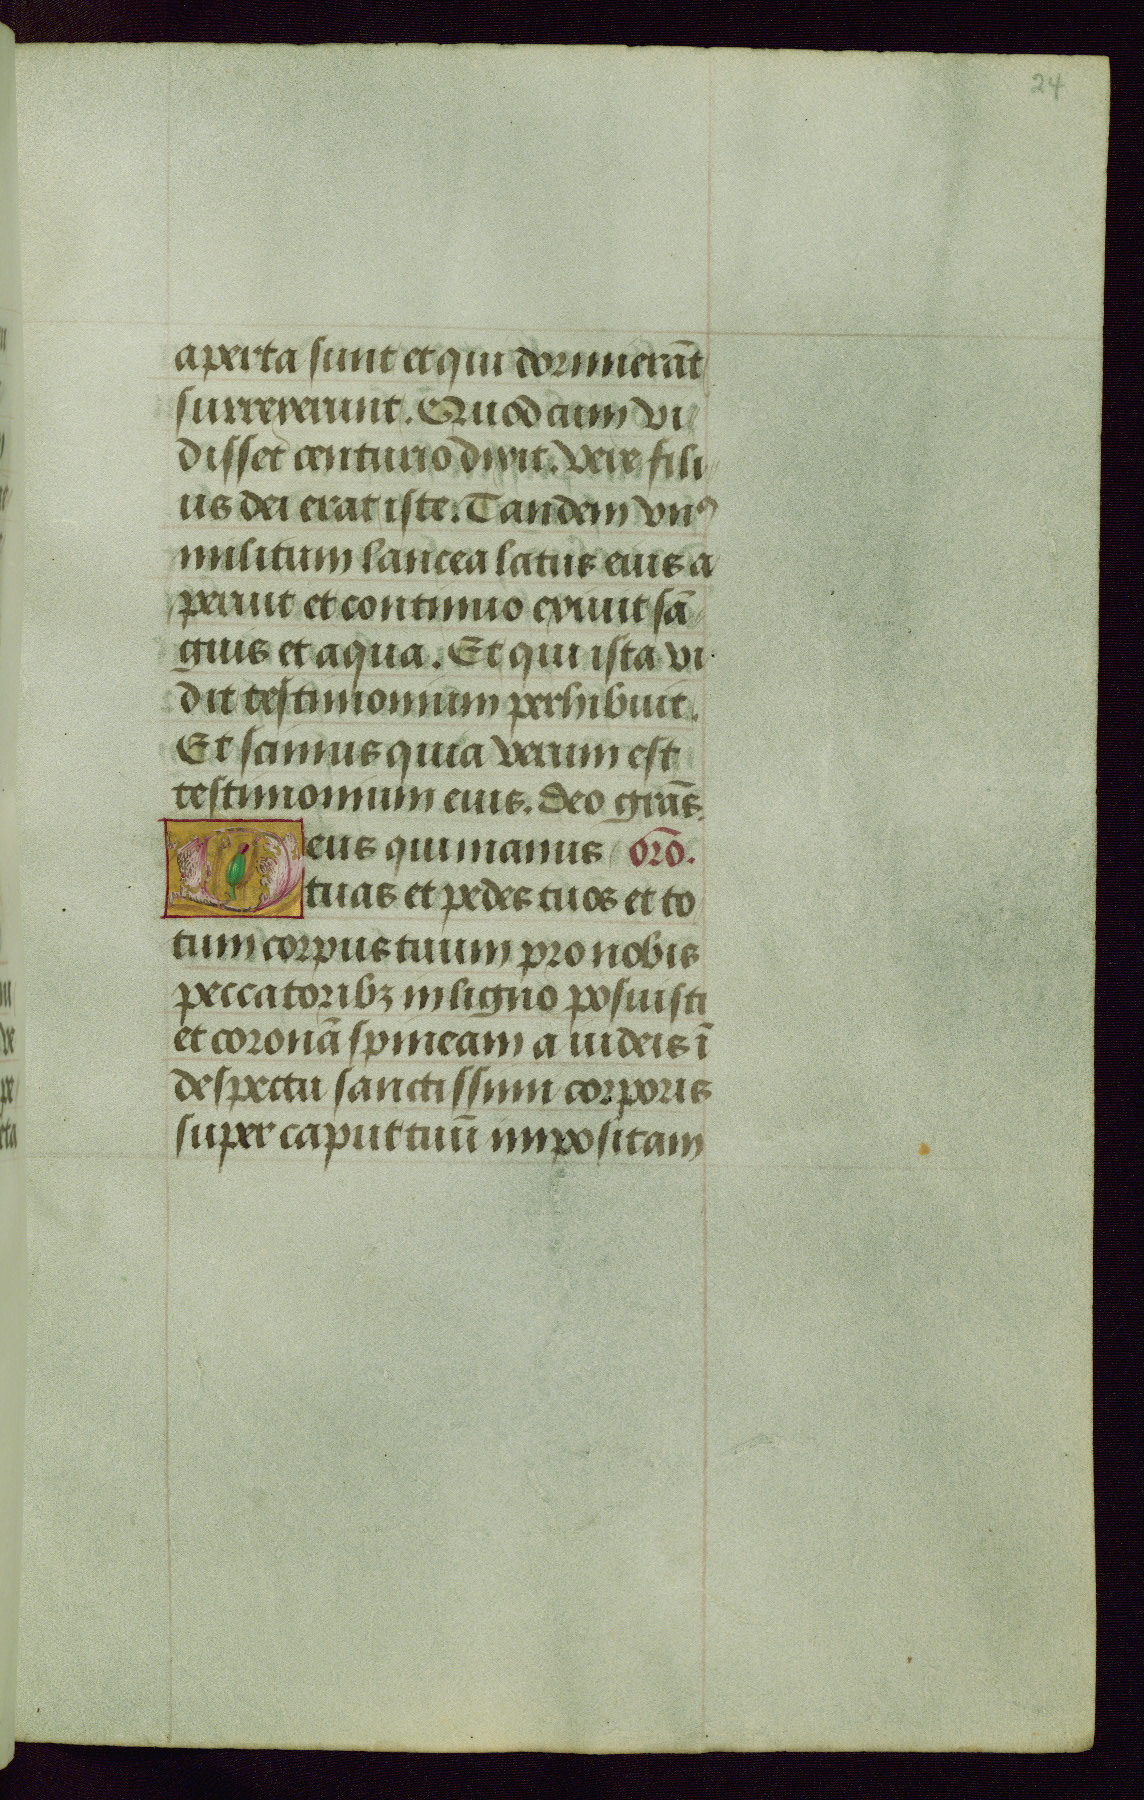 24
aperta sunt et qui dormierāt
surrexerunt. Quod cum vi
disset centurio dixit. Vere fili
us dei erat iste. Tandem vnꝰ
militum lancea latus eius a
peruit et continuo exiuit sā
guis et aqua. Et qui ista vi
dit testimonium perhibuit.
Et scimus quia verum est
testimonium eius. deo grās.
Deus qui manus orō.
tuas et pedes tuos et to
tum corpus tuum pro nobis
peccatoribꝫ in ligno posuisti
et coronā spineam a iudeis ī
despectu sanctissimi corporis
super caput tuū impositam